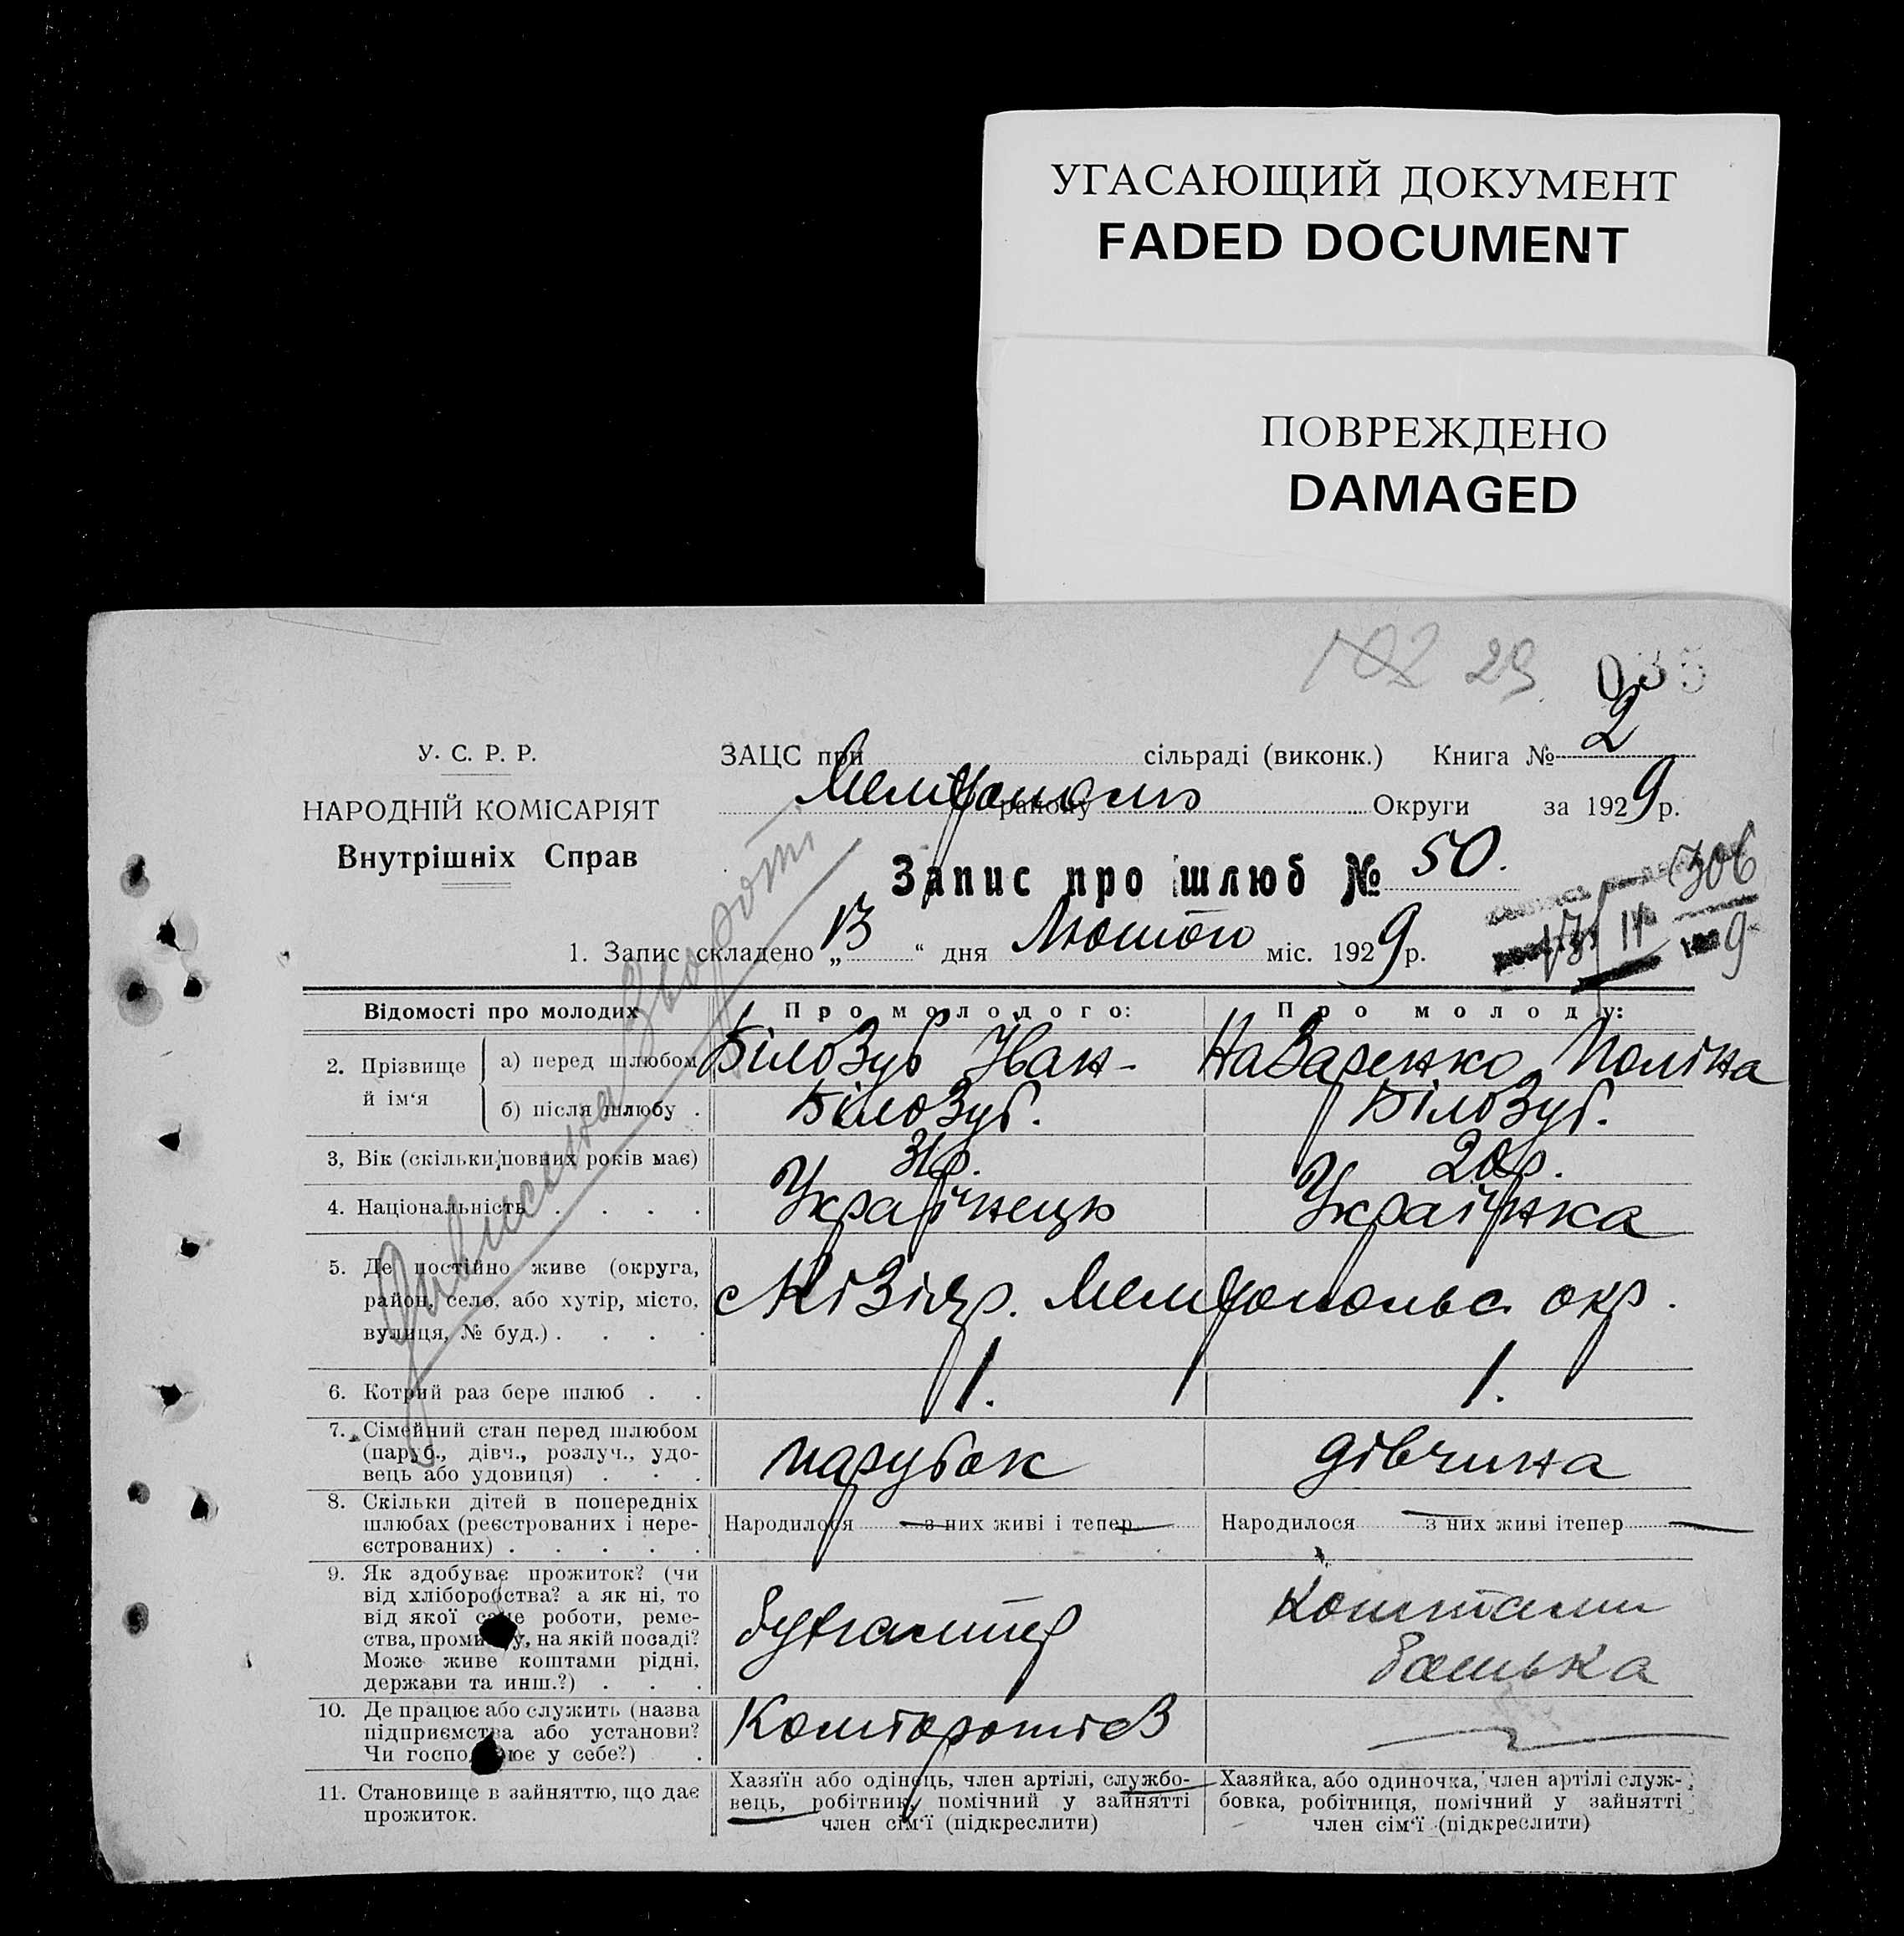 УГАСАЮЩИЙ ДОКУМЕНТ
FADED DOCUMENT
ПОВРЕЖДЕНО
DAMAGED
102 29 035
У. С. Р. Р.
НАРОДНІЙ КОМІСАРІЯТ
Внутрішніх Справ
ЗАЦС при сільраді (виконк.) Книга № 2
Мелітополь району Округи за 1929 р.
Запис про шлюб № 50.
306
1. Запис складено „13“ дня Лютого міс. 1929 р.
13 II 1929
Відомості про молодих
Про молодого:
Про молоду:
2. Прізвище й ім‘я
а) перед шлюбом
Білозуб Іван
Назаренко Поліна
б) після шлюбу .
Білозуб.
Білозуб.
3, Вік (скільки повних років має)
31 р.
20 р.
4. Національність . . . .
Українець
Українка
5. Де постійно живе (округа,
район, село, або хутір, місто,
вулиця, № буд.) . . . .
окр.
6. Котрий раз бере шлюб . .
1.
1.
7. Сімейний стан перед шлюбом
(паруб., дівч., розлуч., удо-
вець або удовиця) . . .
парубок
дівчина
8. Скільки дітей в попередніх
шлюбах (реєстрованих і нере-
єстрованих) . . . . .
Народилося — з них живі і тепер —
Народилося — з них живі ітепер —
9. Як здобуває прожиток? (чи
від хліборобства? а як ні, то
від якої саме роботи, реме-
ства, промислу, на якій посаді?
Може живе коштами рідні,
держави та инш.?) . . .
бухгалтер
Коштами
батька
10. Де працює або служить (назва
підприємства або установи?
Чи господарює у себе?) .
—
11. Становище в зайняттю, що дає
прожиток.
Хазяїн або одінець, член артілі, службо-
вець, робітник, помічний у зайнятті
член сім‘ї (підкреслити)
Хазяйка, або одиночка, член артілі служ-
бовка, робітниця, помічний у зайнятті
член сім‘ї (підкреслити)